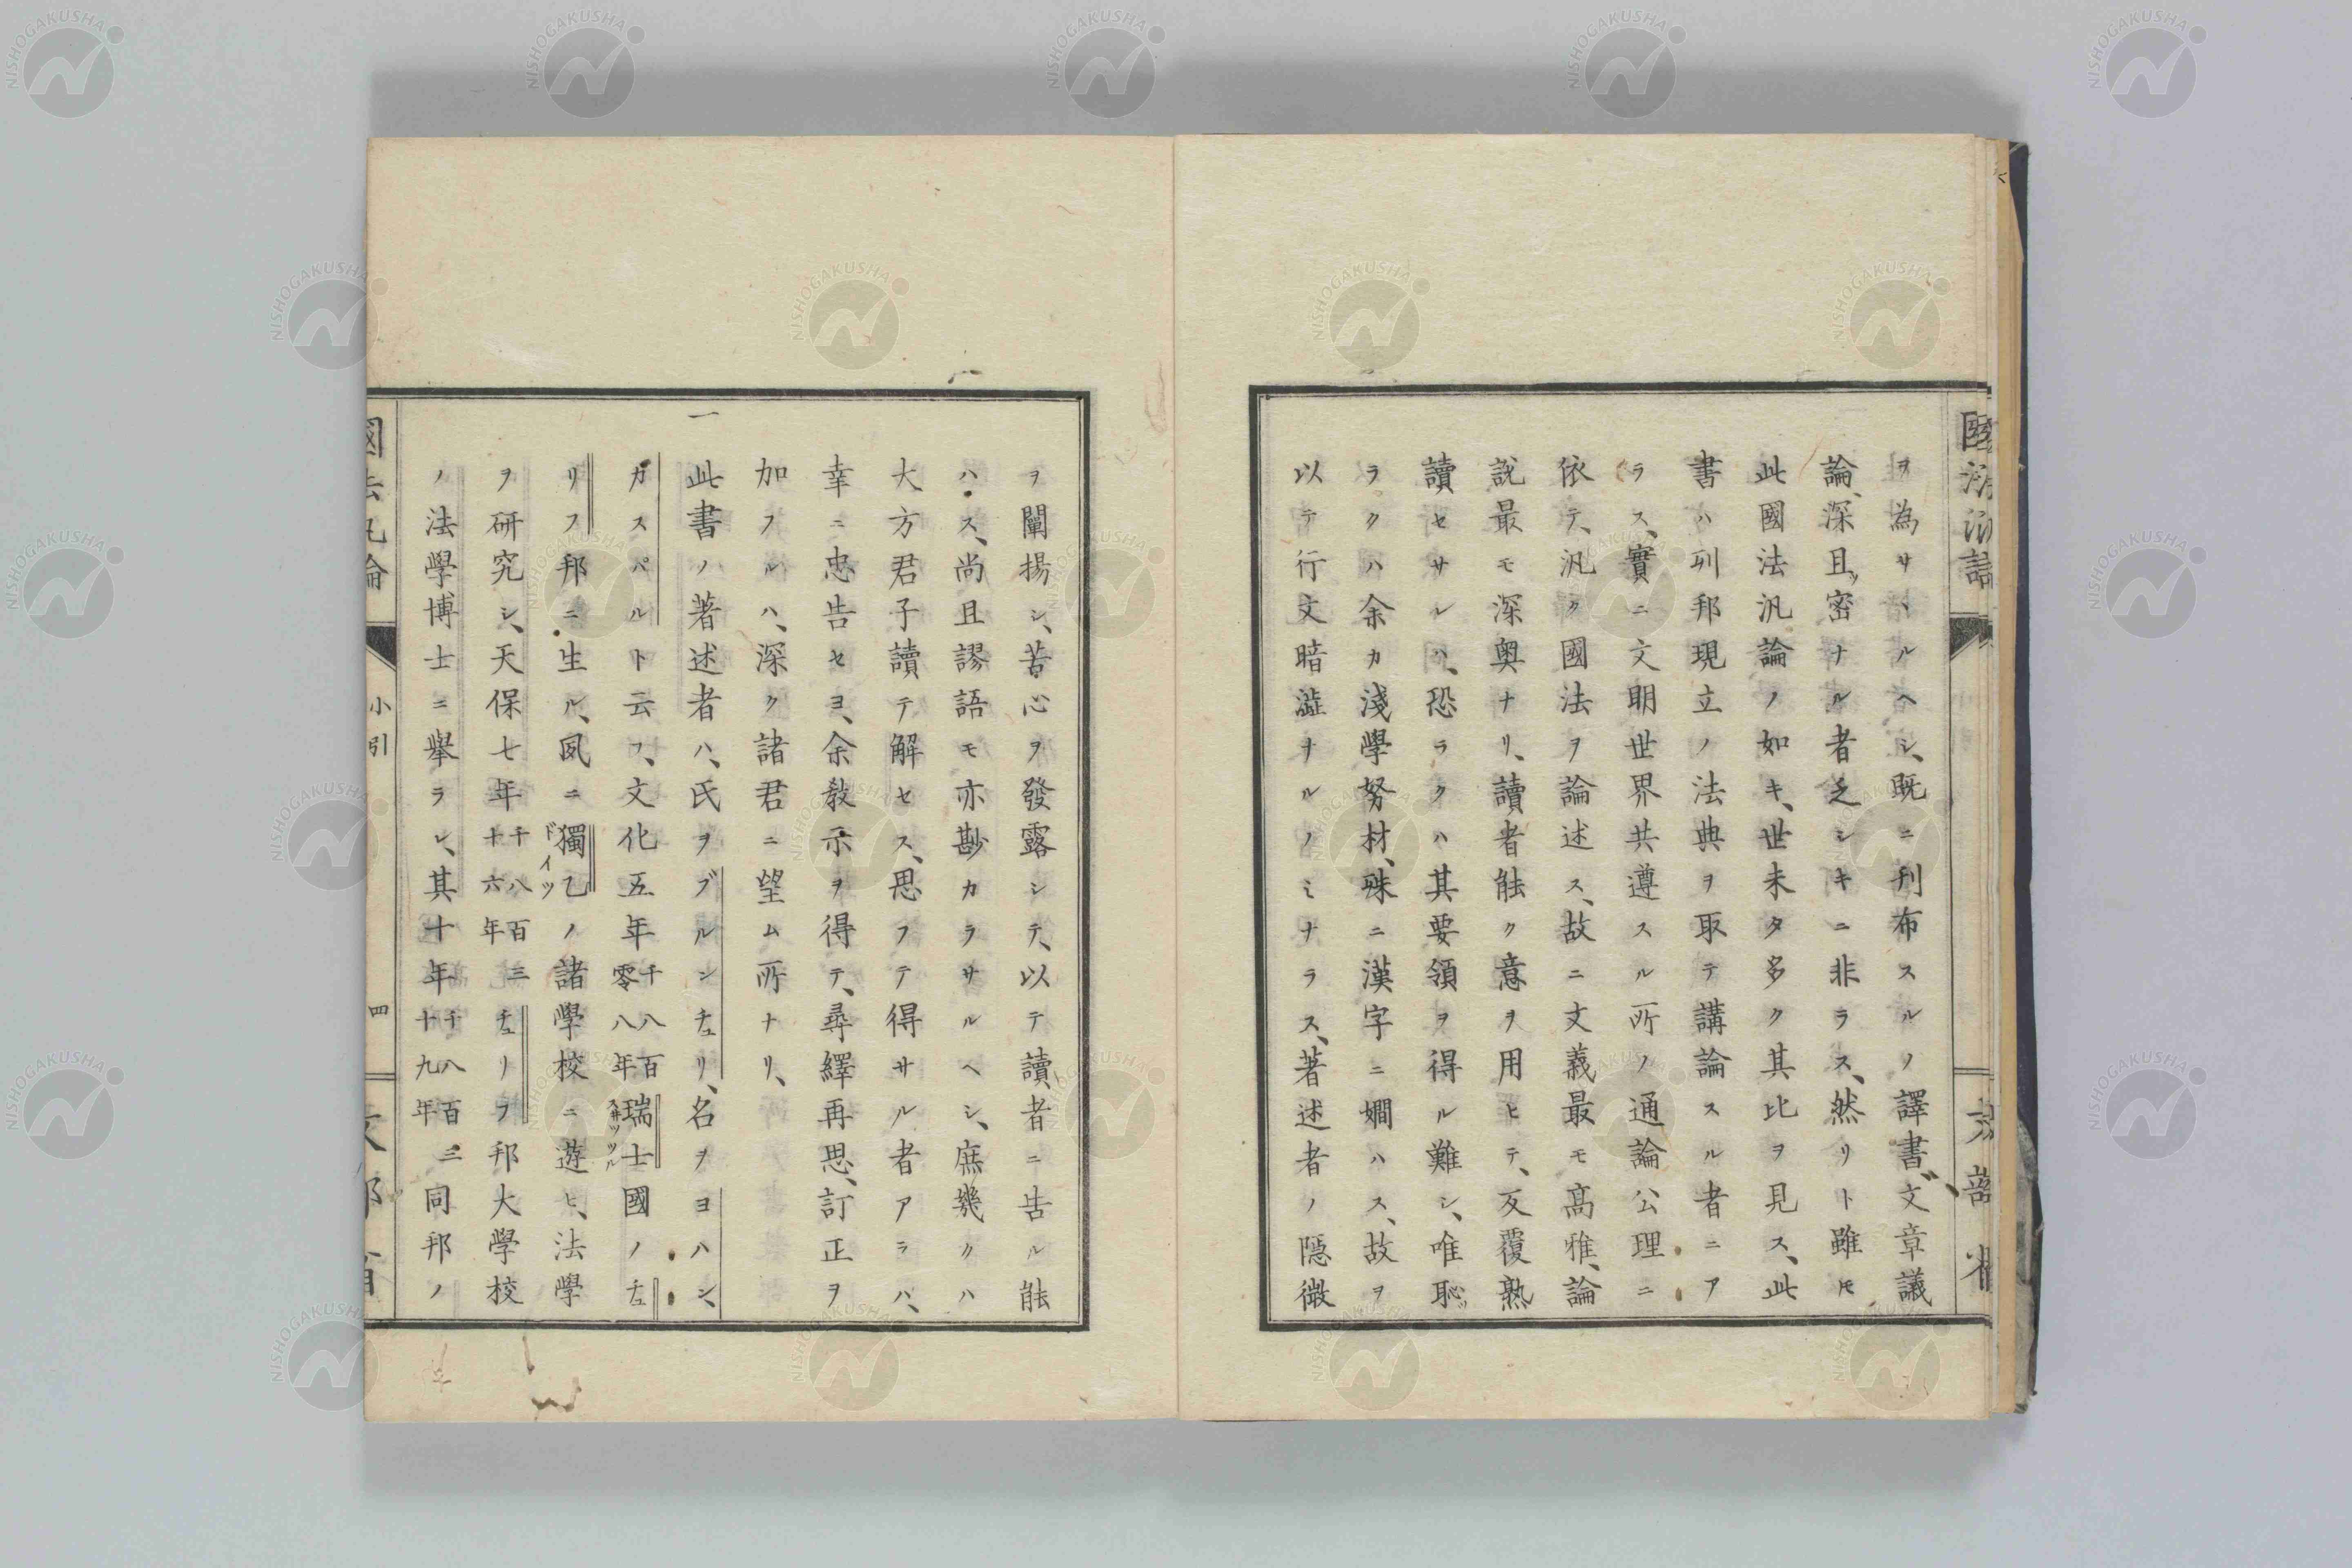 ヲ為サヽルヘシ、既ニ刊布スルノ譯書、文章議
論、深且ツ密ナル者乏シキニ非ラス、然リト雖𪜈
此國法汎論ノ如キ、世未タ多ク其比ヲ見ス、此
書ハ列邦現立ノ法典ヲ取テ講論スル者ニア
ラス、實ニ文明世界共遵スル所ノ通論公理ニ
依テ、汎ク國法ヲ論述ス、故ニ文義最モ高雅、論
説最モ深奥ナリ、讀者能ク意ヲ用ヒテ、反覆熟
讀セサレハ、恐ラクハ其要領ヲ得ル難シ、唯恥ツ
ラクハ余カ淺學努材、殊ニ漢字ニ嫺ハス、故ヲ
以テ行文暗澁ナルノミナラス、著述者ノ隠微
ヲ闡揚シ、苦心ヲ發露シテ、以テ讀者ニ告ル能
ハス、尚且謬語モ亦尠カラサルヘシ、庶幾クハ
大方君子讀テ解セス、思フテ得サル者アラハ、
幸ニ忠告セヨ、余敎示ヲ得テ、尋繹再思、訂正ヲ
加フルハ、深ク諸君ニ望ム所ナリ、
一此書ノ著述者ハ、氏ヲブルンチュリ、名ヲヨハン、
カスパルト云フ、文化五年千八百零八年瑞士スヰッツル國ノチュ
リフ邦ニ生ル、夙ニ獨乙ドイツノ諸學校ニ遊ヒ、法學
ヲ研究シ、天保七年千八百三十六年チュリフ邦大學校
ノ法學博士ニ擧ラレ、其十年千八百三十九年同邦ノ
國法汎論
小引
四
文部省
NISHOGAKUSHA